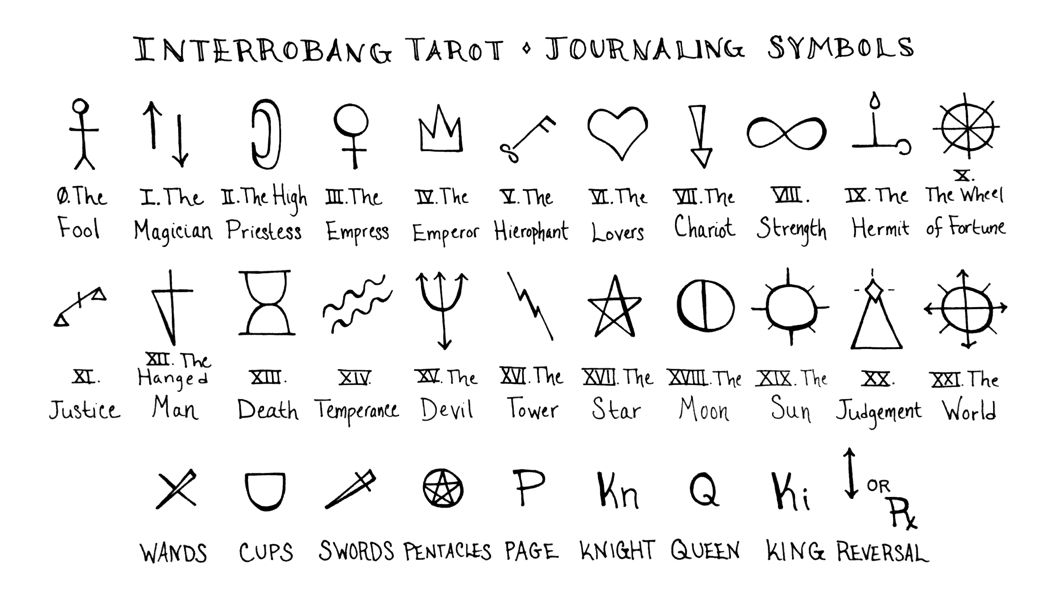 INTERROBANG TAROT ⋄ JOURNALING SYMBOLS
0. The Fool
I. The Magician
II. The High Priestess
III. The Empress
IV. The Emperor
V. The Hierophant
VI. The Lovers
VII. The Chariot
VIII. Strength
IX. The Hermit
X. The Wheel of Fortune
XI. Justice
XII. The Hanged Man
XIII. Death
XIV. Temperance
XV. The Devil
XVI. The Tower
XVII. The Star
XVIII. The Moon
XIX. The Sun
XX. Judgement
XXI. The World
P Kn Q Ki OR Rx
WANDS CUPS SWORDS PENTACLES PAGE KNIGHT QUEEN KING REVERSAL